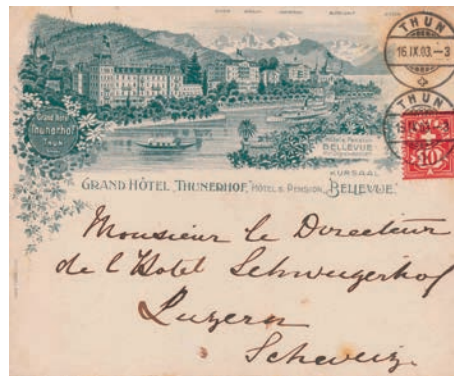 THUN
16.IX.03.-3
THUN
10
Grand Hôtel
Thunerhof
THUN
BELLEVUE
KURSAAL
GRAND HÔTEL „THUNERHOF“, HÔTEL & PENSION „BELLEVUE“
Monsieur le Directeur
de l'Hotel Schweizerhof
Luzern
Schweiz.